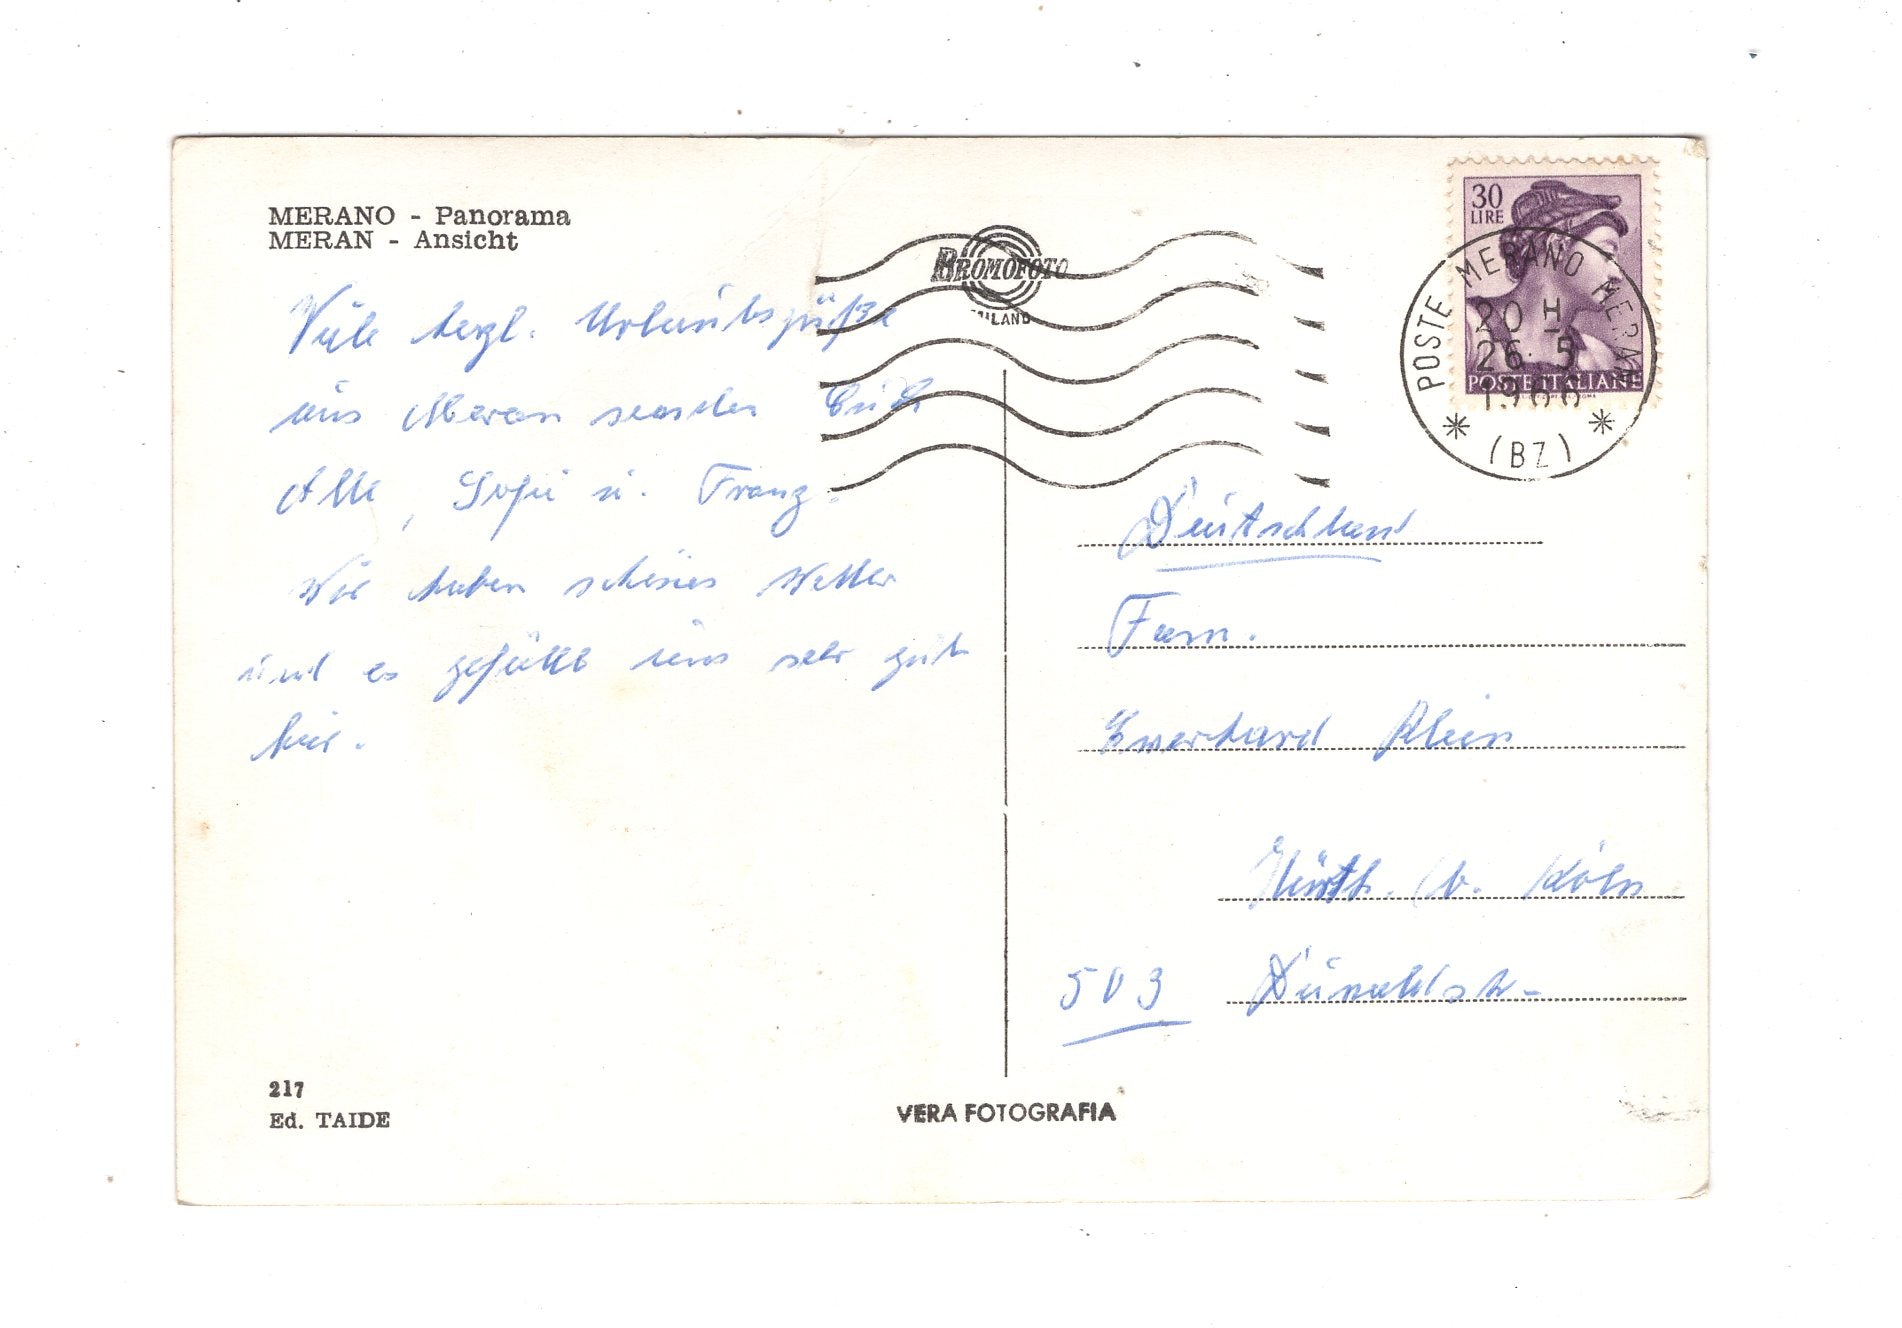 MERANO - Panorama
MERAN - Ansicht
Viele herzl. Urlaubsgrüße
aus Meran senden Euch
Alle, Sofie u. Franz.
Wir haben schönes Wetter
und es gefällt uns sehr gut
hier.
217
Ed. TAIDE
BROMOFOTO
MILANO
VERA FOTOGRAFIA
30
LIRE
POSTE ITALIANE
POSTE MERANO MERAN
20 H
26. 5
1966
(BZ)
Deutschland
Fam.
Everhard Klein
Hürth. b. Köln
503